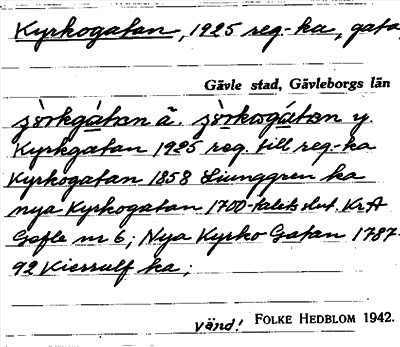 Kyrkogatan, 1925 reg-ka, gata,
Gävle stad, Gävleborgs län
Kyrkgatan 1925 reg. till reg-ka
Kyrkogatan 1858 Ljunggren ka
nya Kyrkogatan 1700-talets slut. KrA
Gefle nr 6; Nya Kyrko Gatan 1787-
92 Kierrulf ka;
vänd! FOLKE HEDBLOM 1942.